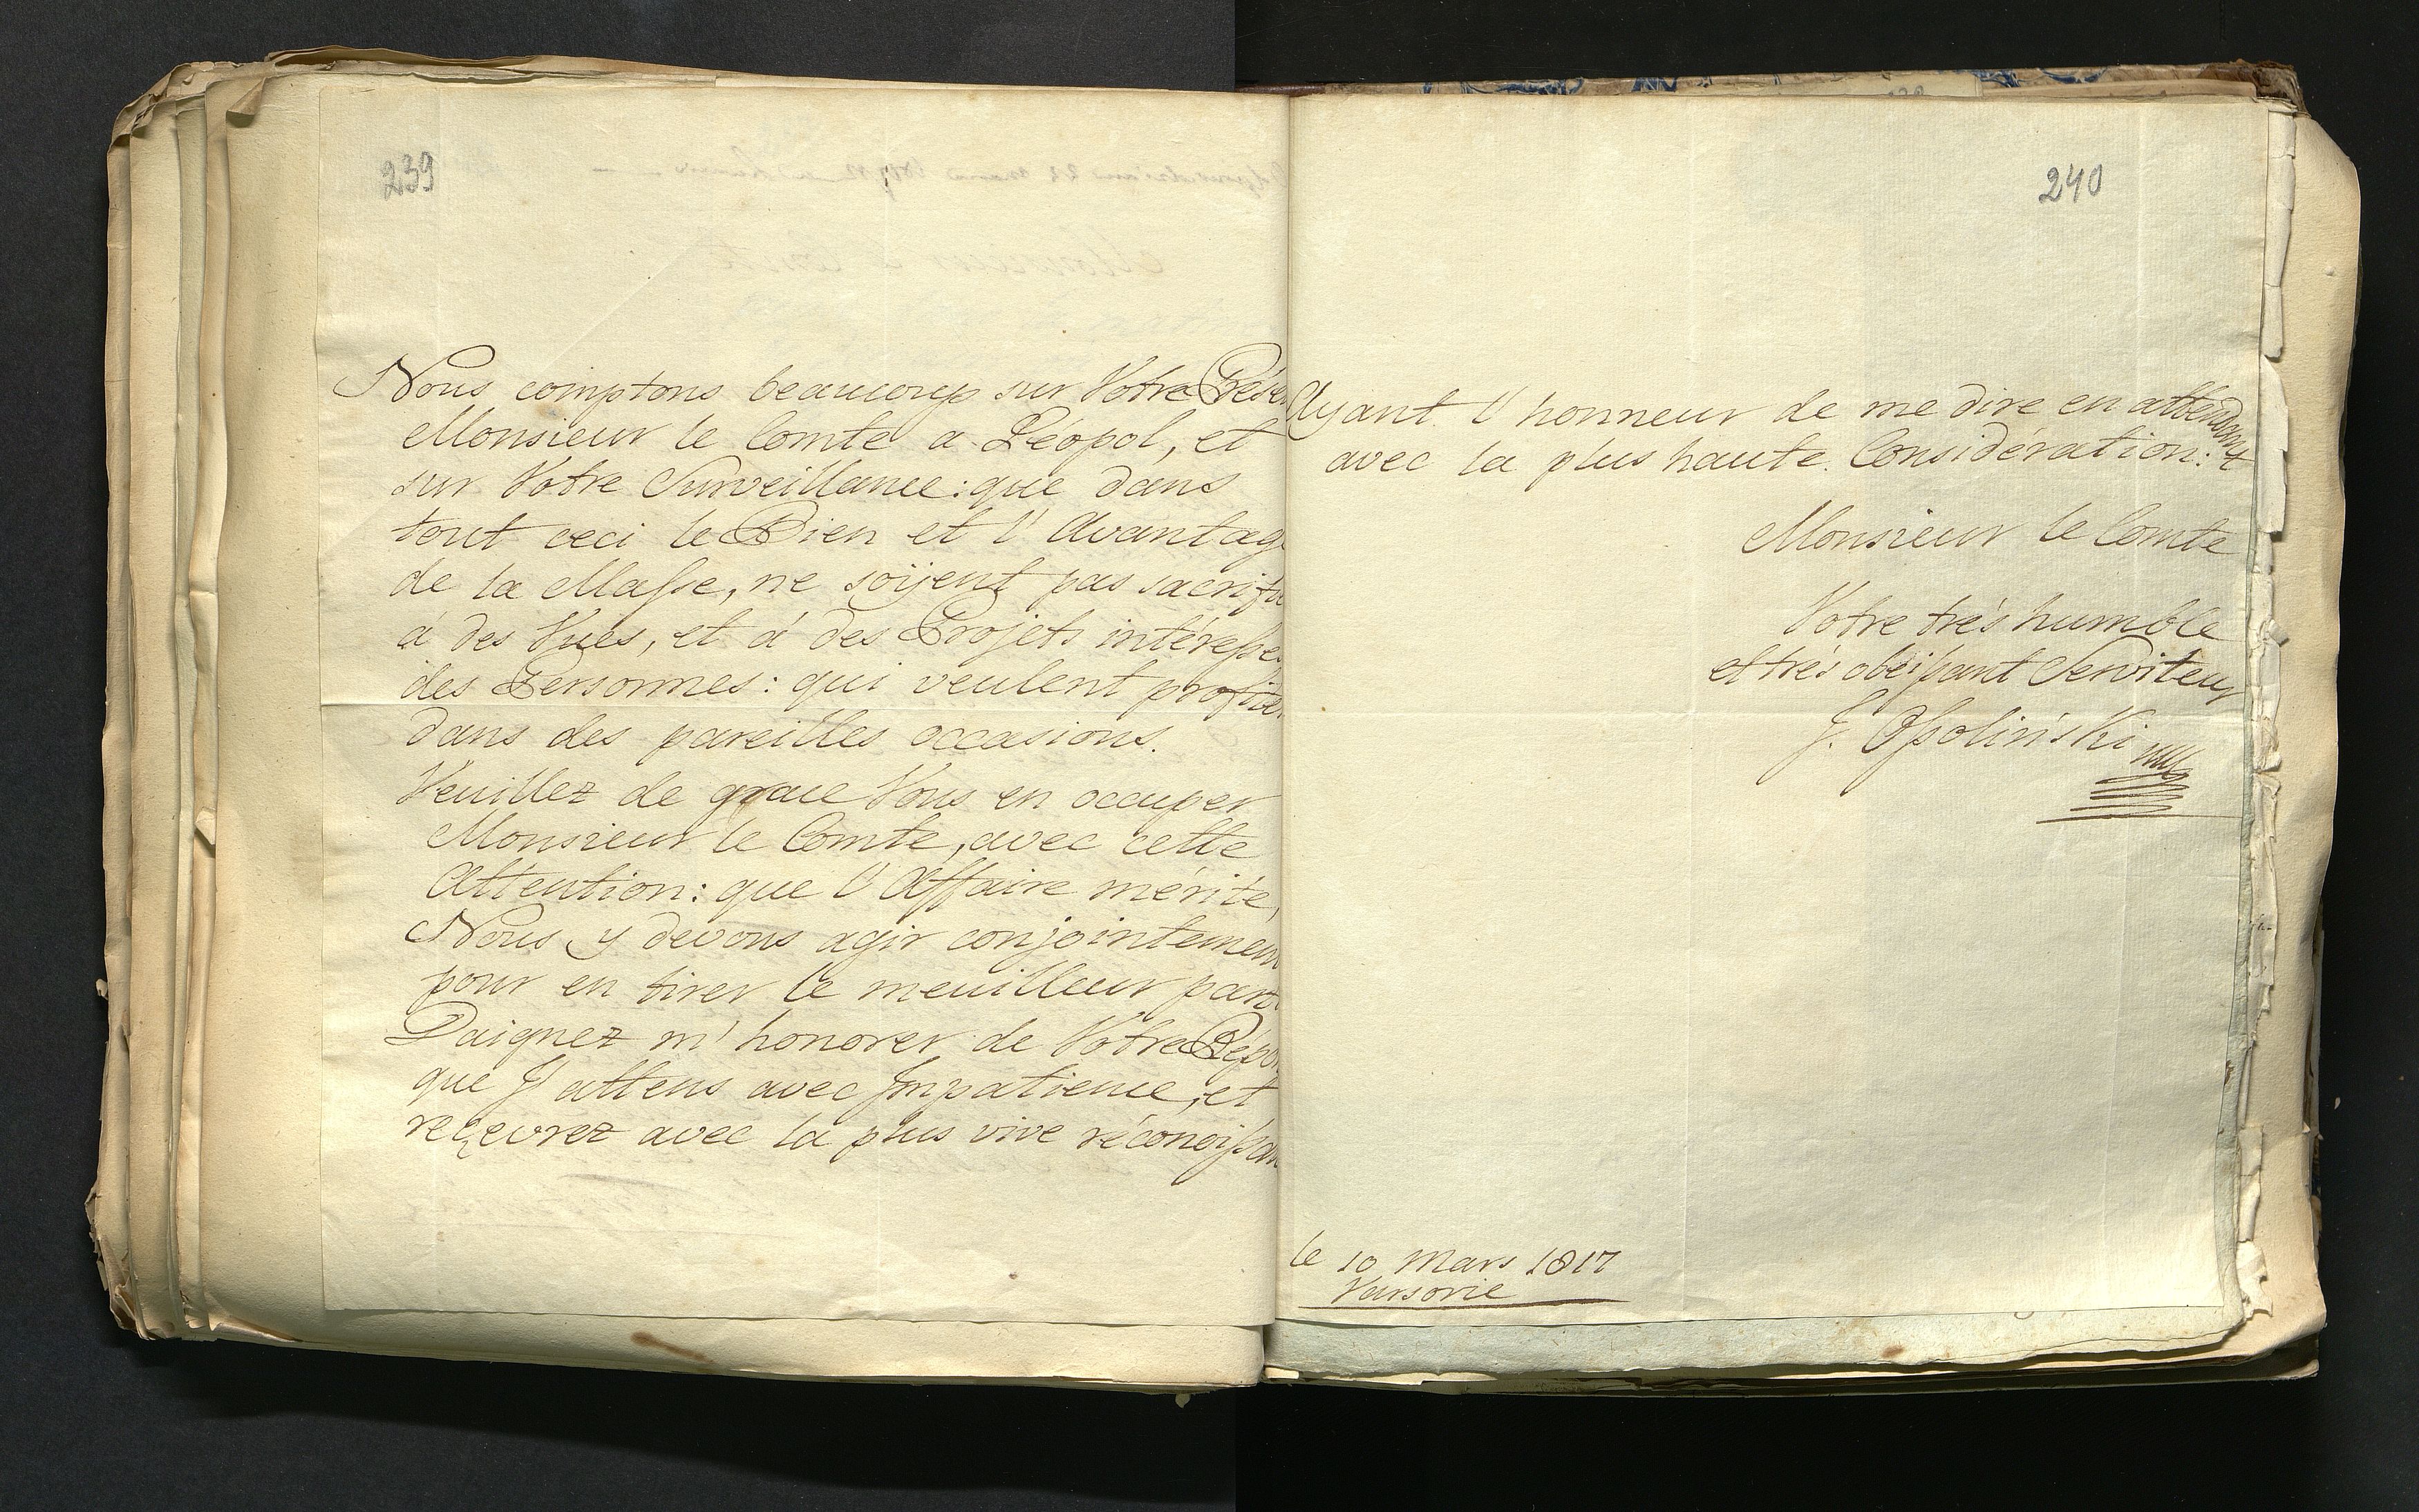 239
Nous comptons beaucoup sur Votre Prése
Monsieur le Comte a Léopol, et
sur Votre Surveillance: que dans
tout ceci le Bien et l'Avantag
de la Maſse, ne soijent pas sacrifi
á des Vues, et á des Projets intéreſse
des Personnes: qui veulent profiter
dans des pareilles occasions.
Veuillez de grace Vous en occuper
Monsieur le Comte, avec cette
Attention: que l'Affaire mérite,
Nous y devons agir conjointemen
pour en tirer le meuilleur parti
Daignez m'honorer de Votre Répon
que J'attens avec Impatience, et
reçevrez avec la plus vive réconoiſsan
240
Ayant l'honneur de me dire en attendant
avec la plus haute Considération:
Monsieur le Comte
Votre trés humble
et trés obéiſsant Serviteur
J. Oſsoliński
le 10 Mars 1817
Varsovie